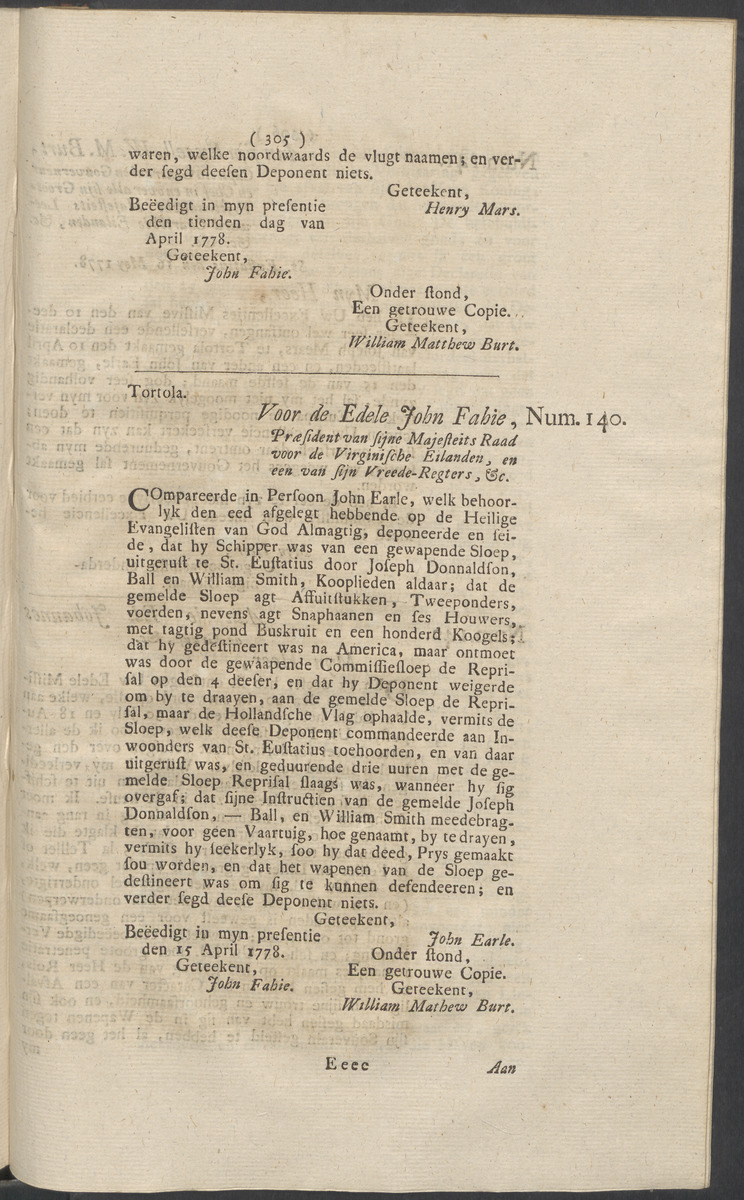 ( 305 )
waren, welke noordwaards de vlugt naamen; en ver-
der segd deesen Deponent niets.
Geteekent,
Henry Mars.
Beëedigt in myn presentie
den tienden dag van
April 1778.
Geteekent,
John Fahie.
Onder stond,
Een getrouwe Copie.
Geteekent,
William Matthew Burt.
Tortola.
Voor de Edele John Fahie, Num. 140.
Præsident van sijne Majesteits Raad
voor de Virginische Eilanden, en
een van sijn Vreede-Regters, &c.
COmpareerde in Persoon John Earle, welk behoor-
lyk den eed afgelegt hebbende op de Heilige
Evangelisten van God Almagtig, deponeerde en sei-
de, dat hy Schipper was van een gewapende Sloep,
uitgerust te St. Eustatius door Joseph Donnaldson,
Ball en William Smith, Kooplieden aldaar; dat de
gemelde Sloep agt Affuitstukken, Tweeponders,
voerden, nevens agt Snaphaanen en ses Houwers,
met tagtig pond Buskruit en een honderd Koogels;
dat hy gedestineert was na America, maar ontmoet
was door de gewaapende Commissiesloep de Repri-
sal op den 4 deeser, en dat hy Deponent weigerde
om by te draayen, aan de gemelde Sloep de Repri-
sal, maar de Hollandsche Vlag ophaalde, vermits de
Sloep, welk deese Deponent commandeerde aan In-
woonders van St. Eustatius toehoorden, en van daar
uitgerust was, en geduurende drie uuren met de ge-
melde Sloep Reprisal slaags was, wanneer hy sig
overgaf; dat sijne Instructien van de gemelde Joseph
Donnaldson, — Ball, en William Smith meedebrag-
ten, voor geen Vaartuig, hoe genaamt, by te drayen,
vermits hy seekerlyk, soo hy dat deed, Prys gemaakt
sou worden, en dat het wapenen van de Sloep ge-
destineert was om sig te kunnen defendeeren; en
verder segd deese Deponent niets.
Geteekent,
John Earle.
Beëedigt in myn presentie
den 15 April 1778.
Geteekent,
John Fahie.
Onder stond,
Een getrouwe Copie.
Geteekent,
William Mathew Burt.
Eeee
Aan